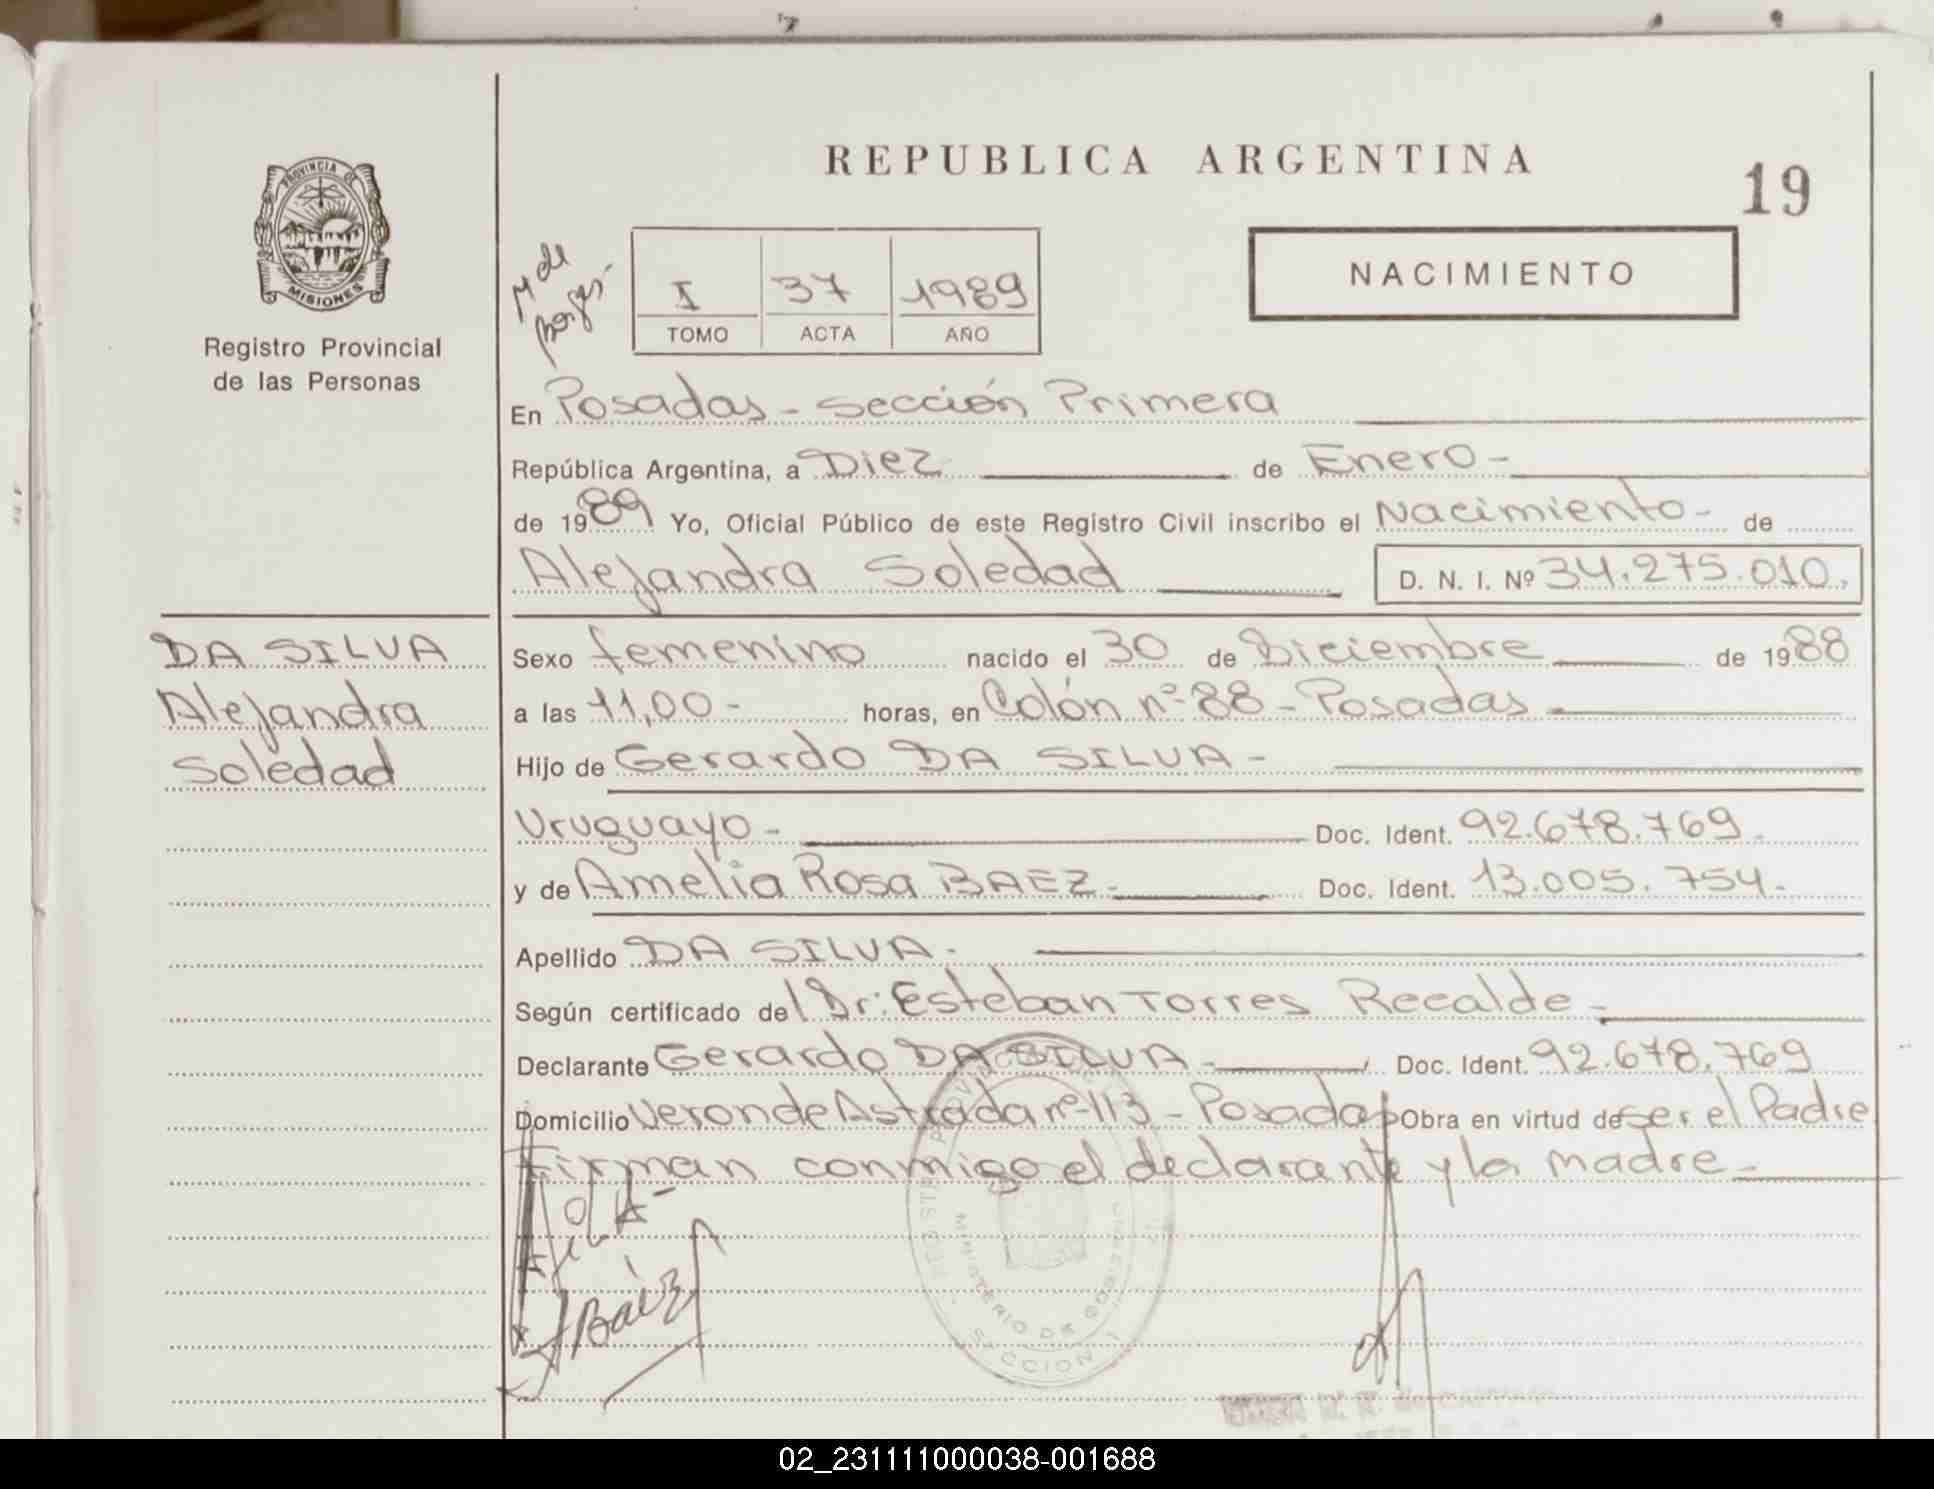 REPUBLICA ARGENTINA
19
PROVINCIA DE
MISIONES
Registro Provincial
de las Personas
I 37 1989
TOMO ACTA AÑO
NACIMIENTO
En Posadas - Sección Primera
República Argentina, a Diez de Enero -
de 1989 Yo, Oficial Público de este Registro Civil inscribo el Nacimiento - de
Alejandra Soledad D. N. I. Nº 34.275.010.
DA SILVA
Alejandra
Soledad
Sexo femenino nacido el 30 de Diciembre de 1988
a las 11,00 - horas, en Colón nº 88 - Posadas
Hijo de Gerardo DA SILVA -
Uruguayo - Doc. Ident. 92.678.769 -
y de Amelia Rosa BAEZ - Doc. Ident. 13.005.754 -
Apellido DA SILVA -
Según certificado del Dr: Esteban Torres Recalde -
Declarante Gerardo DA SILVA - Doc. Ident. 92.678.769
Domicilio Veron de Astrada nº 113 - Posadas Obra en virtud de ser el Padre
Firman conmigo el declarante y la madre -
MINISTERIO DE GOBIERNO
SECCION 1
Baéz
02_231111000038-001688